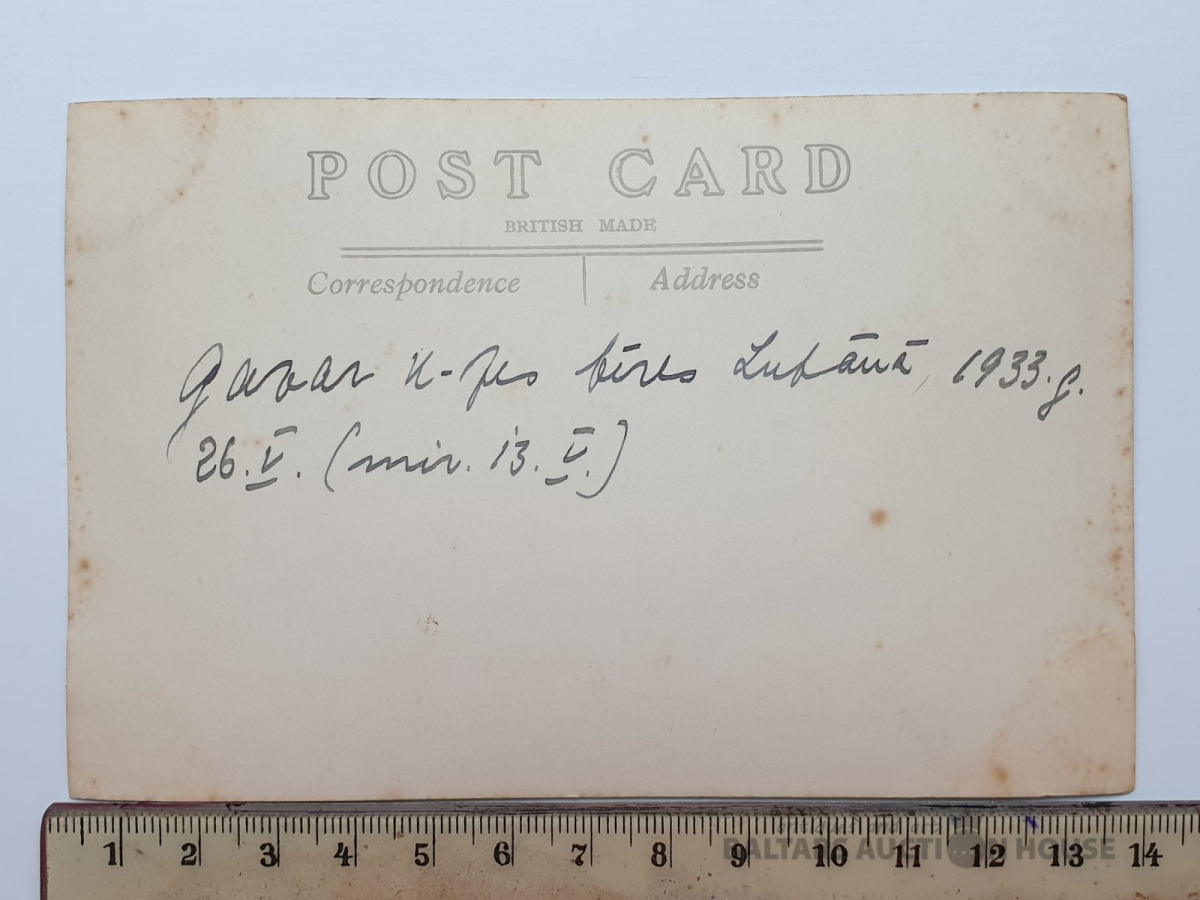 POST CARD
BRITISH MADE
Correspondence
Address
bēres Lubānā, 1933.g.
26.V. (mir. 13.V.)
1 2 3 4 5 6 7 8 9 10 11 12 13 14
BALTARS AUCTION HOUSE